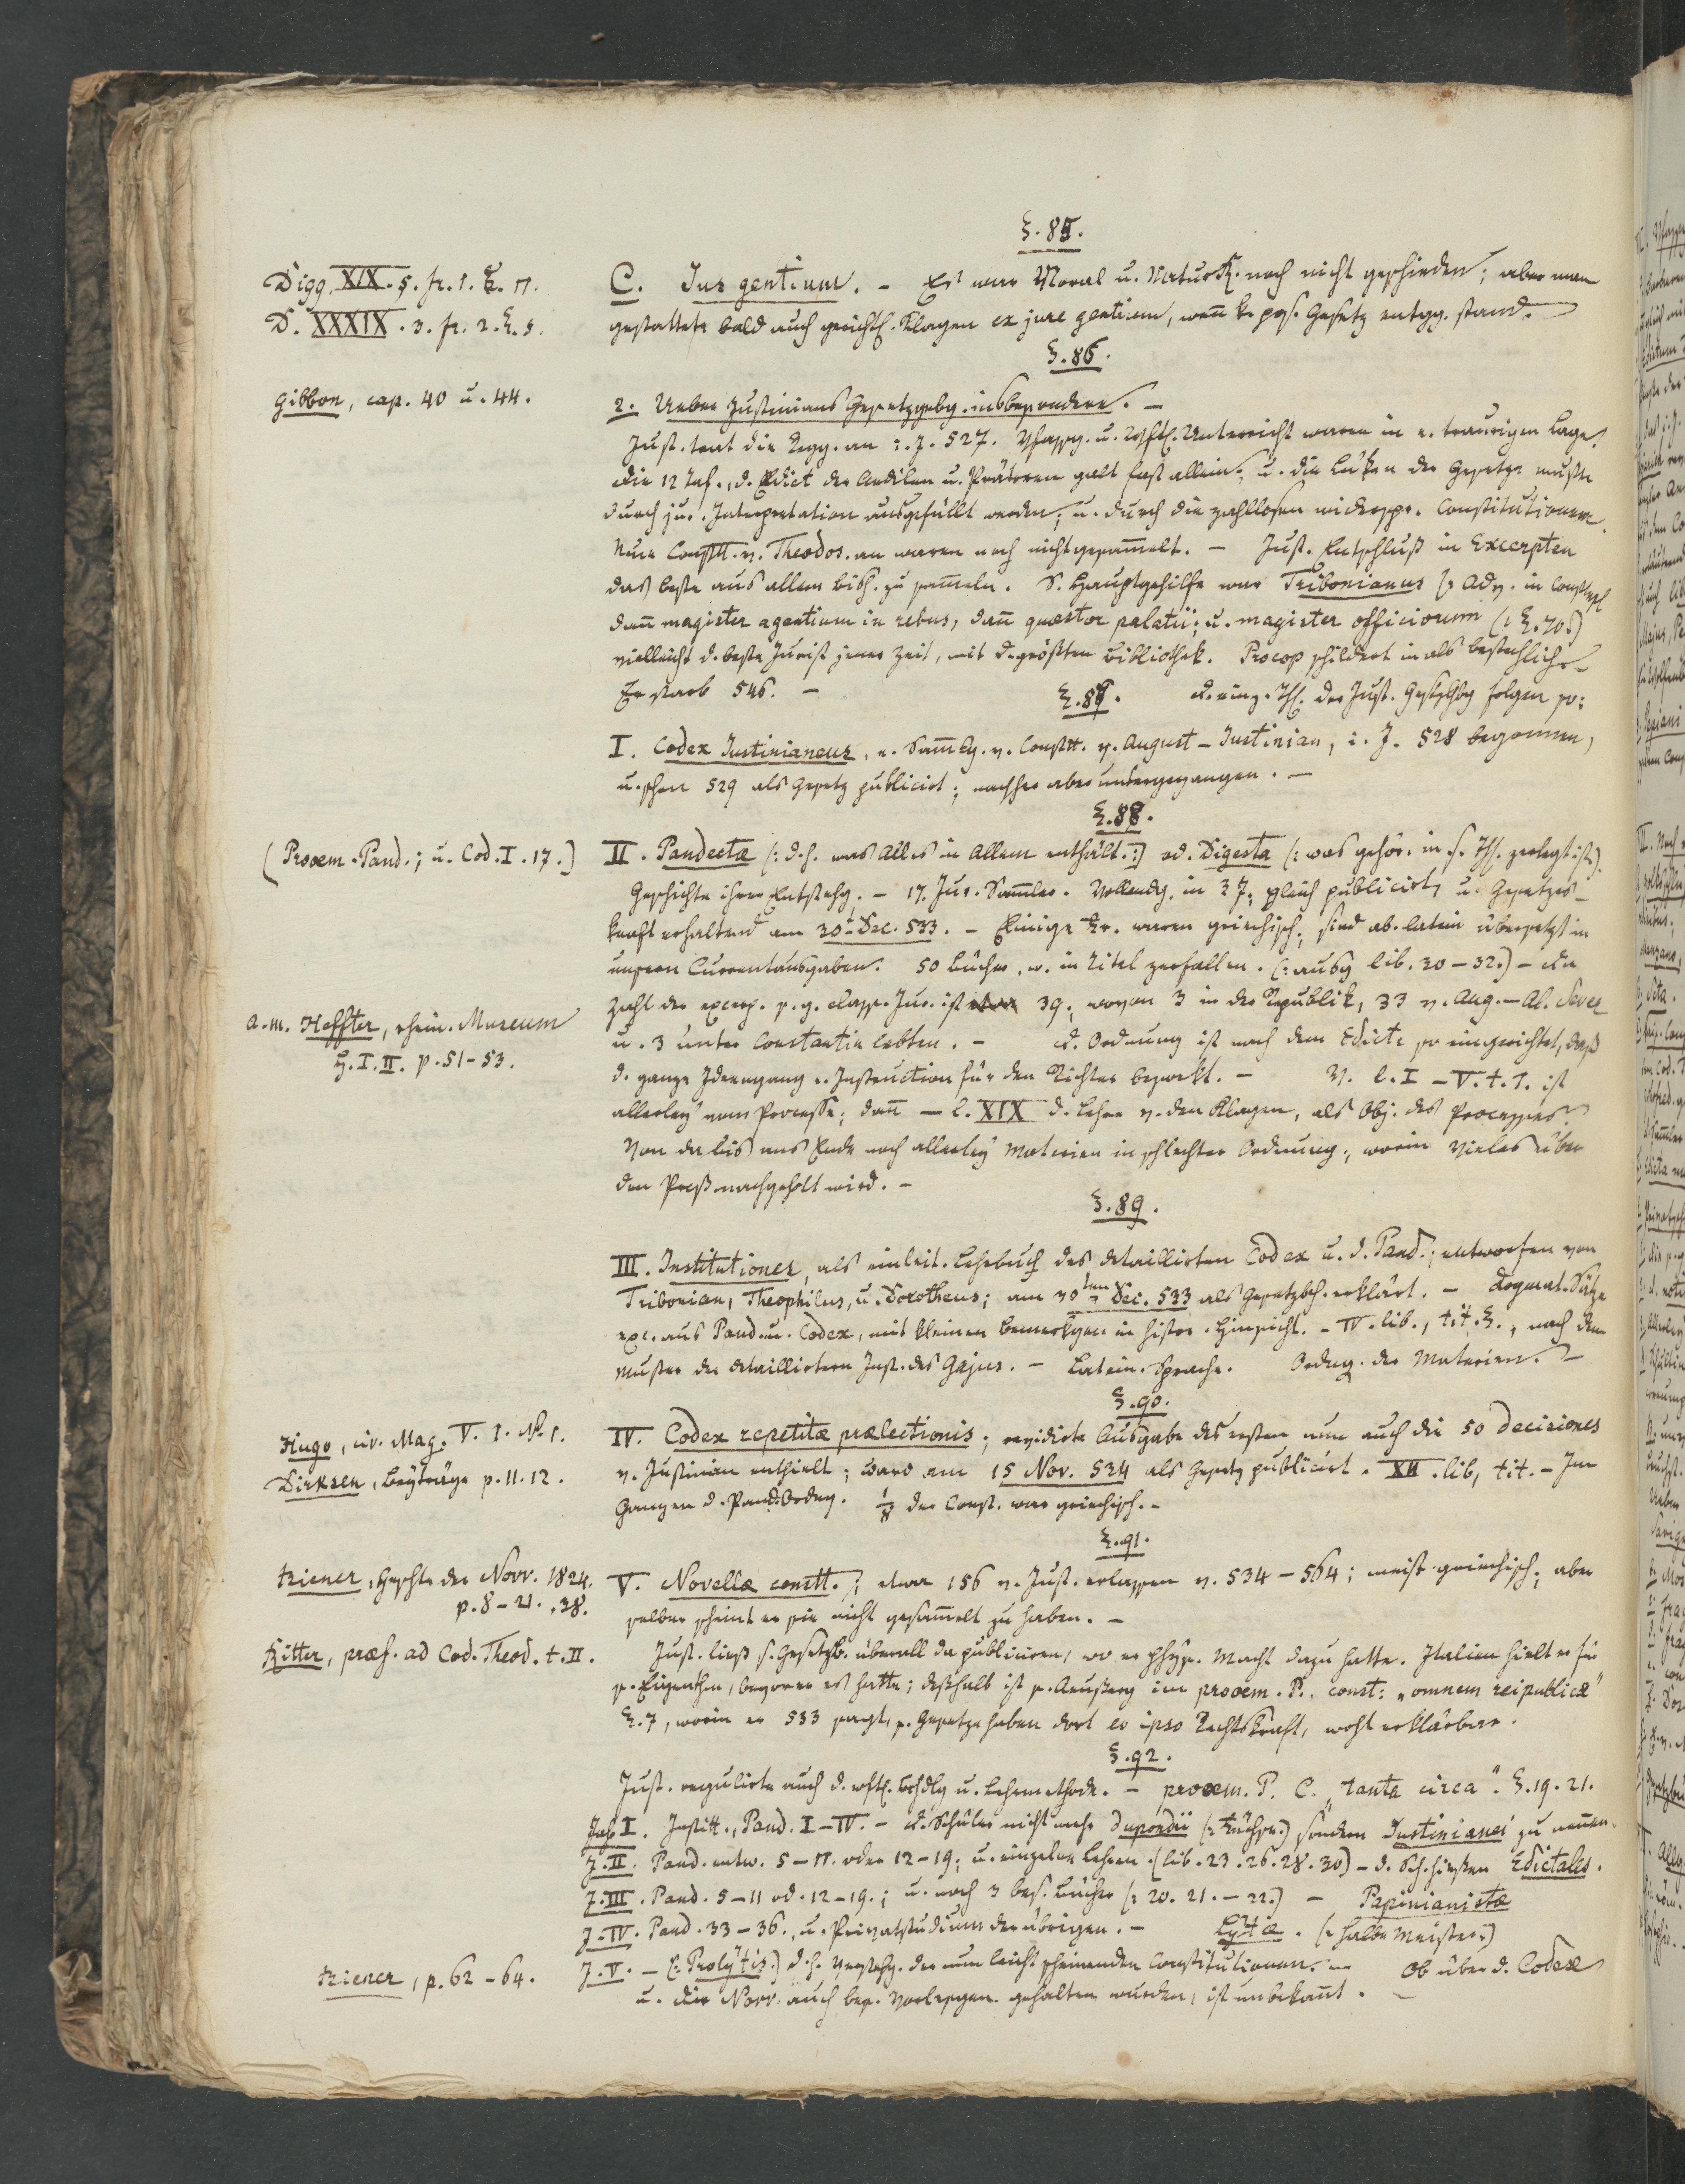 §. 85.
Digg. XIX. 5. fr. 1. §. 17.
D. XXXIX. 3. fr. 2. §. 5.
C. Jus gentium. – Es war Moral u. Natur R. noch nicht geschieden; aber man
gestattete bald auch gerichtl. Klagen ex jure gentium, wen̄ k. pos. Gesetz entgg. stand. –
§. 86.
Gibbon, cap. 40 u. 44.
2. Ueber Justinians Gesetzgebg. insbesondere. –
Just. trat die Regg. an i. J. 527. Unterricht waren in e. traurigen Lage.
Die 12 Taf., d. Edict der Aedilen u. Prätoren galt fast allein; u. die Lücken der Gesetze mußte
durch jur. Interpretation ausgefüllt werden; u. durch die zahllosen widerspr. Constitutionen.
Neue Constt. v. Theodos. an waren noch nicht gesam̄elt. – Just. Entschluß in Excerpten
das beste aus allem bish. zu sam̄eln. S. Hauptgehilfe war Tribonianus (: Adv. in
dan̄ magister agentium in rebus, dan̄ quæstor palatii; u. magister officiorum (: §. 70.)
vielleicht d. beste Jurist jener Zeit, mit d. größten Bibliothek. Procop schildert in als bestechlich. –
Er starb 546. –
§. 87. D. einz. Th. der Just. folgen so:
I. Codex Justinianeus, e. Sam̄lg. v. Constt. v. August – Justinian, i. J. 528 begonnen,
u. schon 529 als Gesetz publicirt; nachher aber untergegangen. –
§. 88.
(Prooem. Pand.; u. Cod. I. 17.)
II. Pandectæ (: d. h. was Alles in Allem enthält. :) od. Digesta (: was gehör. in s. Th. zerlegt ist.)
Geschichte ihrer Entstehg. – 17. Jur. Sam̄ler. Vollendg. in 3 J. gleich publicirt, u. Gesetzes-
kraft erhaltend am 30t Dec. 533. – Einige Fr. waren griechisch; sind ab. latein übersetzt in
unsern Currentausgaben. 50 Bücher, w. in Titel zerfallen. (: ausg. lib. 30–32.) – Die
Zahl der excerp. s. g. class. Jur. ist 39; wovon 3 in der Republik, 33 v. Aug. – Al. Sever
a. m. Heffter, rhein. Museum
H. I. II. p. 51–53.
u. 3 unter Constantin lebten. – D. Ordnung ist nach dem Edicte so eingerichtet, daß
d. ganze Ideengang e. Instruction für den Richter bezwekt. – V. l. I – V. t. 1. ist
allerley vom Processe; dan̄ – l. XIX d. Lehre v. den Klagen, als Obj. des Processes.
Von da bis ans Ende noch allerley Materien in schlechter Ordnung, worin Vieles über
den Proß nachgeholt wird. –
§. 89.
III. Institutiones, als einleit. Lehrbuch des detaillirten Codex u. d. Pand.; entworfen von
Tribonian, Theophilus, u. Dorotheus; am 30ten Dec. 533 als Gesetzbch. erklärt. – Dogmat. Sätze
exc. aus Pand. u. Codex, mit kleinen Bemerkgen in histor. Hinsicht. – IV. lib., tit. §., nach dem
Muster der detaillirtern Inst. des Gajus. – Latein. Sprache. Ordng. der Materien. –
§. 90.
Hugo, civ. Mag. V. 1. N. 1.
Dirksen, Beyträge p. 11. 12.
IV. Codex repetitæ prælectionis; revidirte Ausgabe des ersten nun auch die 50 decisiones
v. Justinian enthielt; ward am 15 Nov. 534 als Gesetz publicirt. XII. lib, tit. – Im
Ganzen d. Pand. Ordng. 1/8 der Const. war griechisch. –
§. 91.
Biener, Geschte der Novv. 1824.
p. 8–21., 38.
V. Novellæ constt.; etwa 156 v. Just. erlassen v. 534–564; meist griechisch, aber
selber scheint er sie nicht gesam̄elt zu haben. –
Ritter, præf. ad Cod. Theod. t. II.
Just. ließ s. Gesetzb. überall da publiciren, wo er physs. Macht dazu hatte. Italien hielt er für
s. Eigenthm, bevor er es hatte; deßhalb ist s. Aeußerg im prooem. P., const: „omnem reipublicæ"
§. 7, worin er 533 sagt, s. Gesetze haben dort eo ipso Rechtskraft, wohl erklärbar.
§. 92.
Just. regulirte auch d. Bhdlg u. Lehrmethode. – prooem. P. C. „tanta circa". §. 19. 21.
Jah I. Institt., Pand. I–IV. – D. Schüler nicht mehr Dupondii (: Füchse.) sondern Justinianei zu nen̄en.
J. II. Pand. entw. 5–11. oder 12–19; u. einzelne Lehren. (lib. 23. 26. 28. 30) – d. Sch. hießen Edictales.
J. III. Pand. 5–11 od. 12–19.; u. noch 3 bes. Bücher (: 20. 21. – 22.) – Papinianistæ
J. IV. Pand. 33–36., u. Privatstudium der übrigen. – Lytæ. (: halbe Meister.)
Biener, p. 62–64.
J. V. – (: Prolytis.) d. h. Verstehg. der nun leicht scheinenden Constitutionen. – Ob über d. Codex
u. die Novv. auch bes. Vorlesgen. gehalten wurden, ist unbekan̄t. –